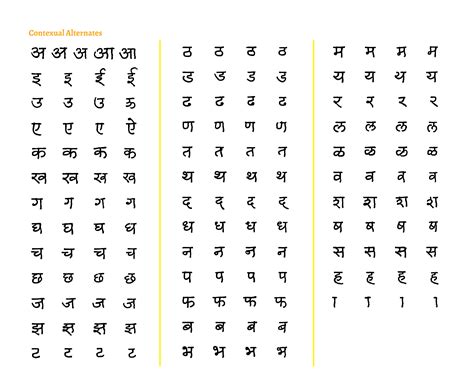 Contexual Alternates
अ अ अ आ आ
इ इ ई ई
उ उ ऊ ऊ
ए ए ए ऐ
क क क क
ख ख ख ख
ग ग ग ग
घ घ घ घ
च च च च
छ छ छ छ
ज ज ज ज
झ झ झ झ
ट ट ट ट
ठ ठ ठ ठ
ड ड ड ड
ढ ढ ढ ढ
ण ण ण ण
त त त त
थ थ थ थ
द द द द
ध ध ध ध
न न न न
प प प प
फ फ फ फ
ब ब ब ब
भ भ भ भ
म म म म
य य य य
र र र र
ल ल ल ल
ळ ळ ळ ळ
व व व व
श श श श
ष ष ष ष
स स स स
ह ह ह ह
ा ा ा ा